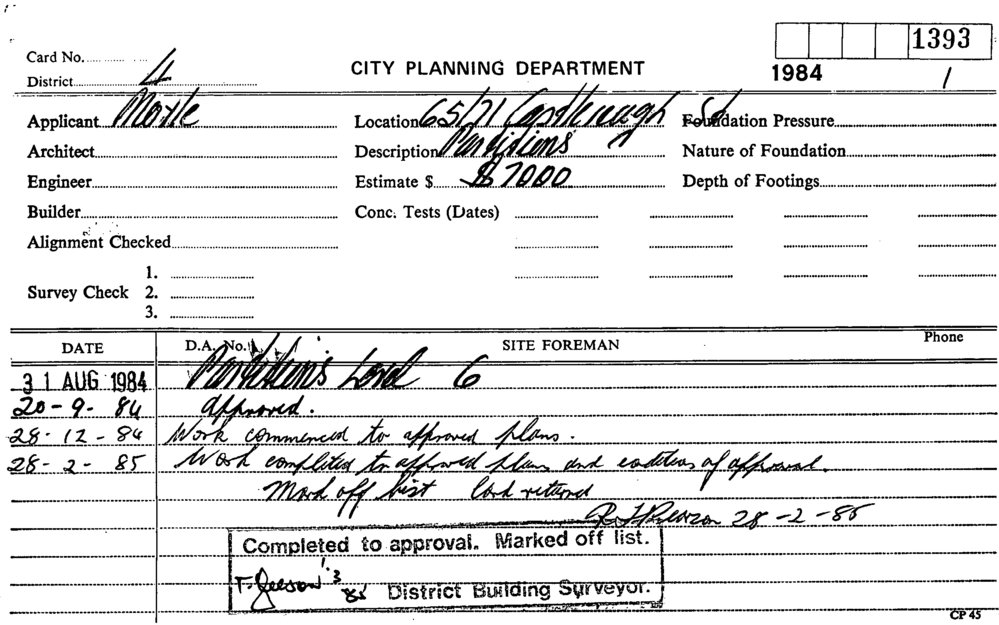 1393
Card No.
CITY PLANNING DEPARTMENT
1984
1
District 4
Applicant Location 65/71 Castlereagh St Foundation Pressure
Architect Description Partitions Nature of Foundation
Engineer Estimate $ $7000 Depth of Footings
Builder Conc. Tests (Dates)
Alignment Checked
1.
Survey Check 2.
3.
DATE D.A. No. SITE FOREMAN Phone
31 AUG 1984 Partitions Level 6
20-9-84 approved.
28-12-84 Work commenced to approved plans.
28-2-85 Work completed to approved plans and conditions of approval.
Mark off list Card returned
28-2-85
Completed to approval. Marked off list.
1.3
85 District Building Surveyor.
CP 45